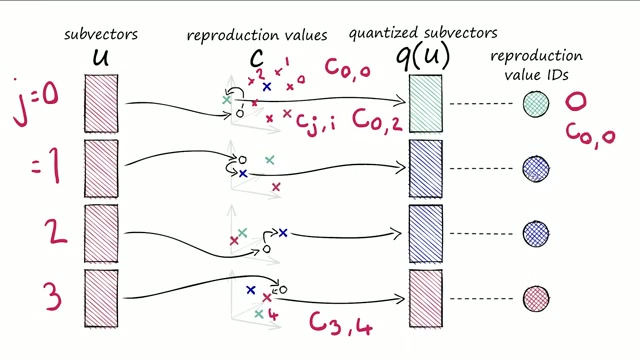 subvectors
u
reproduction values
c
quantized subvectors
q(u)
reproduction
value IDs
j=0
2 1 0
C0,0
Cj,i
C0,2
0
C0,0
=1
2
3
4
C3,4